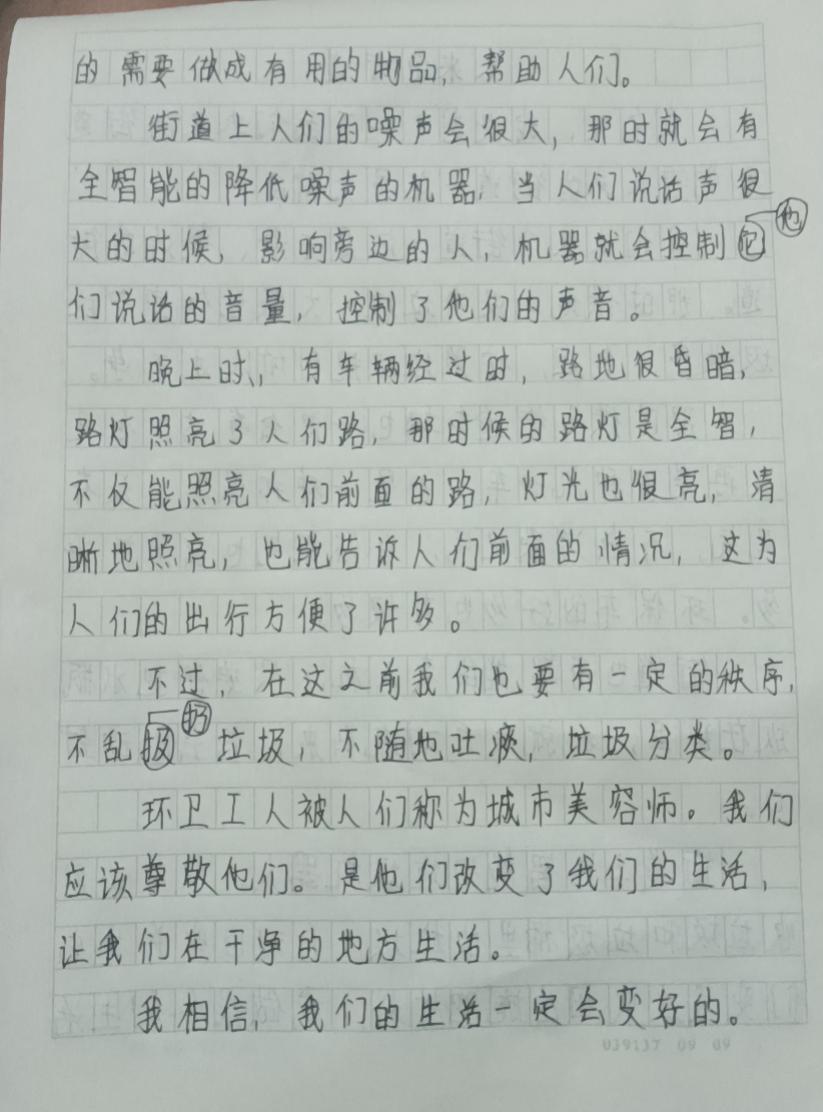 的需要做成有用的物品，帮助人们。
街道上人们的噪声会很大，那时就会有
全智能的降低噪声的机器，当人们说话声很
他
大的时候，影响旁边的人，机器就会控制它
们说话的音量，控制了他们的声音。
晚上时，有车辆经过时，路地很昏暗，
路灯照亮了人们路，那时候的路灯是全智，
不仅能照亮人们前面的路，灯光也很亮，清
晰地照亮，也能告诉人们前面的情况，这为
人们的出行方便了许多。
不过，在这之前我们也要有一定的秩序，
扔
不乱垃圾，不随地吐痰，垃圾分类。
环卫工人被人们称为城市美容师。我们
应该尊敬他们。是他们改变了我们的生活，
让我们在干净的地方生活。
我相信，我们的生活一定会变好的。
039137 09 09